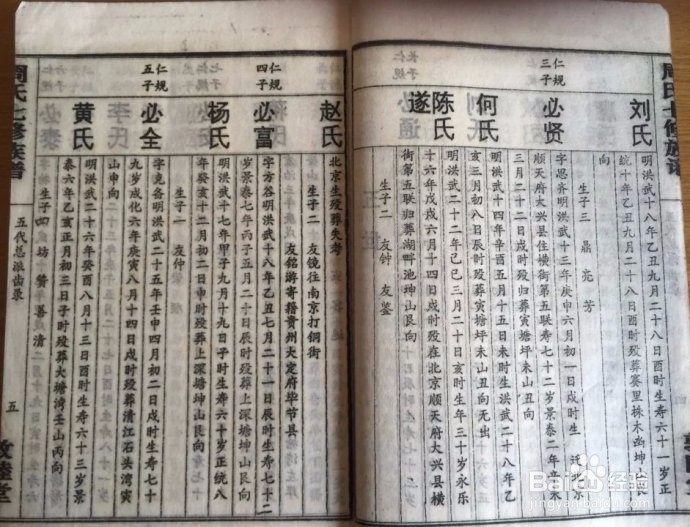 周氏七修族谱
刘氏
明洪武十八年乙丑九月二十八日酉时生寿六十一岁正
统十年乙丑九月二十八日酉时殁葬赛里株木凼坤山艮
向
生子三 鼎 亮 芳
仁规
三子
必贤
字思齐明洪武十三年庚申六月初一日戌时生 迁北京
顺天府大兴县住横街第五联寿七十二岁景泰二年辛未
二月二十日戌时殁归葬寅塘坪未山丑向
何氏
明洪武十四年辛酉五月十五日未时生洪武二十八年乙
亥三月初八日辰时殁葬寅塘坪未山丑向无出
陈氏
遂
明洪武二十二年己巳三月二十日亥时生年三十岁永乐
十六年戊戌六月十四日戌时殁在北京顺天府大兴县横
街第五联归葬湖畔池坤山艮向
生子二 友钟 友鉴
赵氏
北京生殁葬失考
生子二 友镜往南京打铜街
友铭游寄籍贵州大定府毕节县
仁规
四子
必富
字方谷明洪武十八年乙丑七月二十一日辰时生寿七十二
岁景泰七年丙子五月二十日辰时殁葬上深塘坤山艮向
杨氏
明洪武十七年甲子九月十九日子时生寿六十岁正统八
年癸亥十二月初二日申时殁葬上深塘坤山艮向
生子一 友仲
仁规
五子
必全
字克务明洪武二十五年壬申四月初二日戌时生寿七十
九岁成化六年庚寅八月十四日戌时殁葬清江石头湾寅
山申向
黄氏
明洪武二十六年癸酉八月十三日酉时生寿六十三岁景
泰六年乙亥正月初三日子时殁葬大塘湾壬山丙向
生子四 坊 赞 善 清
周氏七修族谱
五代总派齿录
五
敦睦堂
Baidu经验
jingyan.baidu.com